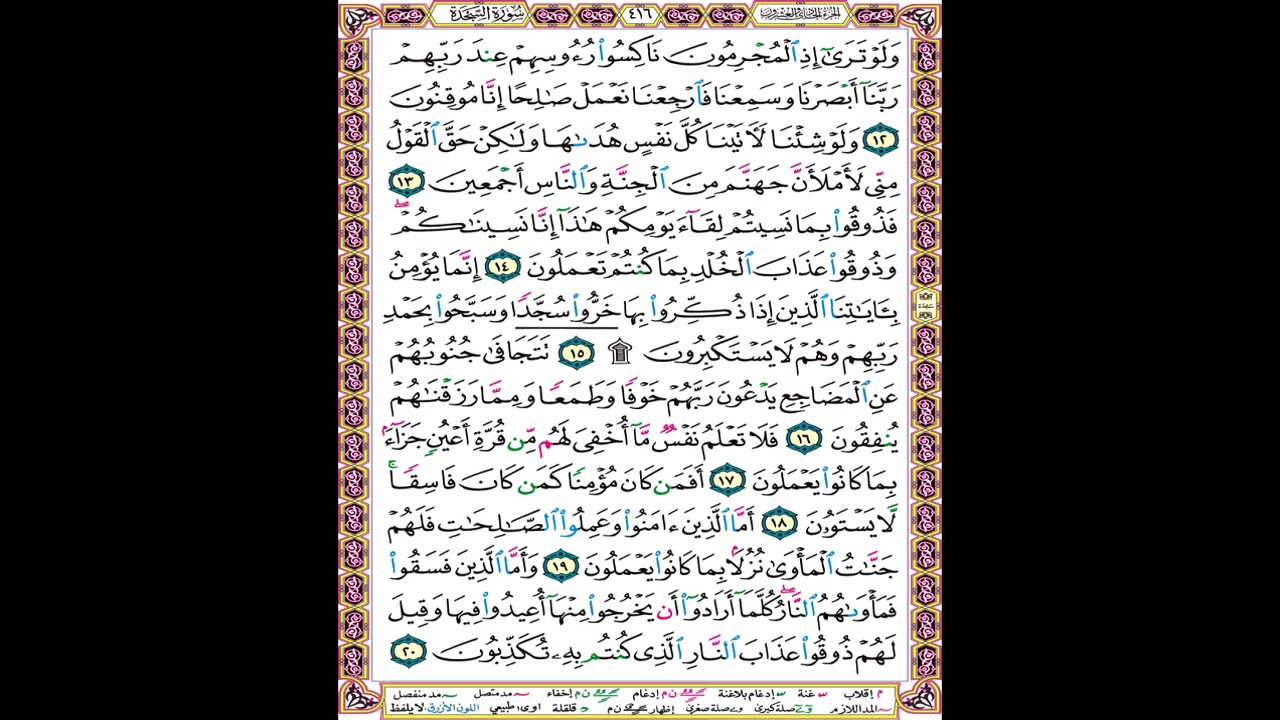 الجزء الحادي والعشرون ٤١٦ سُورَةُ السَّجْدَةِ
وَلَوْ تَرَىٰٓ إِذِ الْمُجْرِمُونَ نَاكِسُوا رُءُوسِهِمْ عِندَ رَبِّهِمْ
رَبَّنَآ أَبْصَرْنَا وَسَمِعْنَا فَارْجِعْنَا نَعْمَلْ صَالِحًا إِنَّا مُوقِنُونَ
١٢ وَلَوْ شِئْنَا لَأٓتَيْنَا كُلَّ نَفْسٍ هُدَىٰهَا وَلَٰكِنْ حَقَّ الْقَوْلُ
مِنِّي لَأَمْلَأَنَّ جَهَنَّمَ مِنَ الْجِنَّةِ وَالنَّاسِ أَجْمَعِينَ ١٣
فَذُوقُوا بِمَا نَسِيتُمْ لِقَآءَ يَوْمِكُمْ هَٰذَآ إِنَّا نَسِينَٰكُمْ ۖ
وَذُوقُوا عَذَابَ الْخُلْدِ بِمَا كُنتُمْ تَعْمَلُونَ ١٤ إِنَّمَا يُؤْمِنُ
بِـَٔايَٰتِنَا الَّذِينَ إِذَا ذُكِّرُوا بِهَا خَرُّوا سُجَّدًا وَسَبَّحُوا بِحَمْدِ
رَبِّهِمْ وَهُمْ لَا يَسْتَكْبِرُونَ ۩ ١٥ تَتَجَافَىٰ جُنُوبُهُمْ
عَنِ الْمَضَاجِعِ يَدْعُونَ رَبَّهُمْ خَوْفًا وَطَمَعًا وَمِمَّا رَزَقْنَٰهُمْ
يُنفِقُونَ ١٦ فَلَا تَعْلَمُ نَفْسٌ مَّآ أُخْفِيَ لَهُم مِّن قُرَّةِ أَعْيُنٍ جَزَآءً
بِمَا كَانُوا يَعْمَلُونَ ١٧ أَفَمَن كَانَ مُؤْمِنًا كَمَن كَانَ فَاسِقًا ۚ
لَّا يَسْتَوُونَ ١٨ أَمَّا الَّذِينَ ءَامَنُوا وَعَمِلُوا الصَّٰلِحَٰتِ فَلَهُمْ
جَنَّٰتُ الْمَأْوَىٰ نُزُلًا بِمَا كَانُوا يَعْمَلُونَ ١٩ وَأَمَّا الَّذِينَ فَسَقُوا
فَمَأْوَىٰهُمُ النَّارُ ۖ كُلَّمَآ أَرَادُوٓا أَن يَخْرُجُوا مِنْهَآ أُعِيدُوا فِيهَا وَقِيلَ
لَهُمْ ذُوقُوا عَذَابَ النَّارِ الَّذِي كُنتُم بِهِۦ تُكَذِّبُونَ ٢٠
سجدة
م إقلاب غنة إدغام بلاغنة ن م إدغام ن م إخفاء مد متصل مد منفصل
المد اللازم صلة كبرى صلة صغرى إظهار ن م قلقلة اوى: طبيعي اللون الأزرق: لا يلفظ